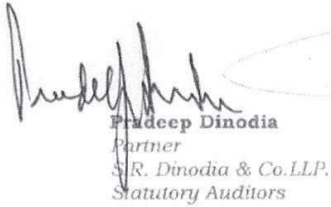 Pradeep Dinodia
Partner
S.R. Dinodia & Co.LLP.
Statutory Auditors